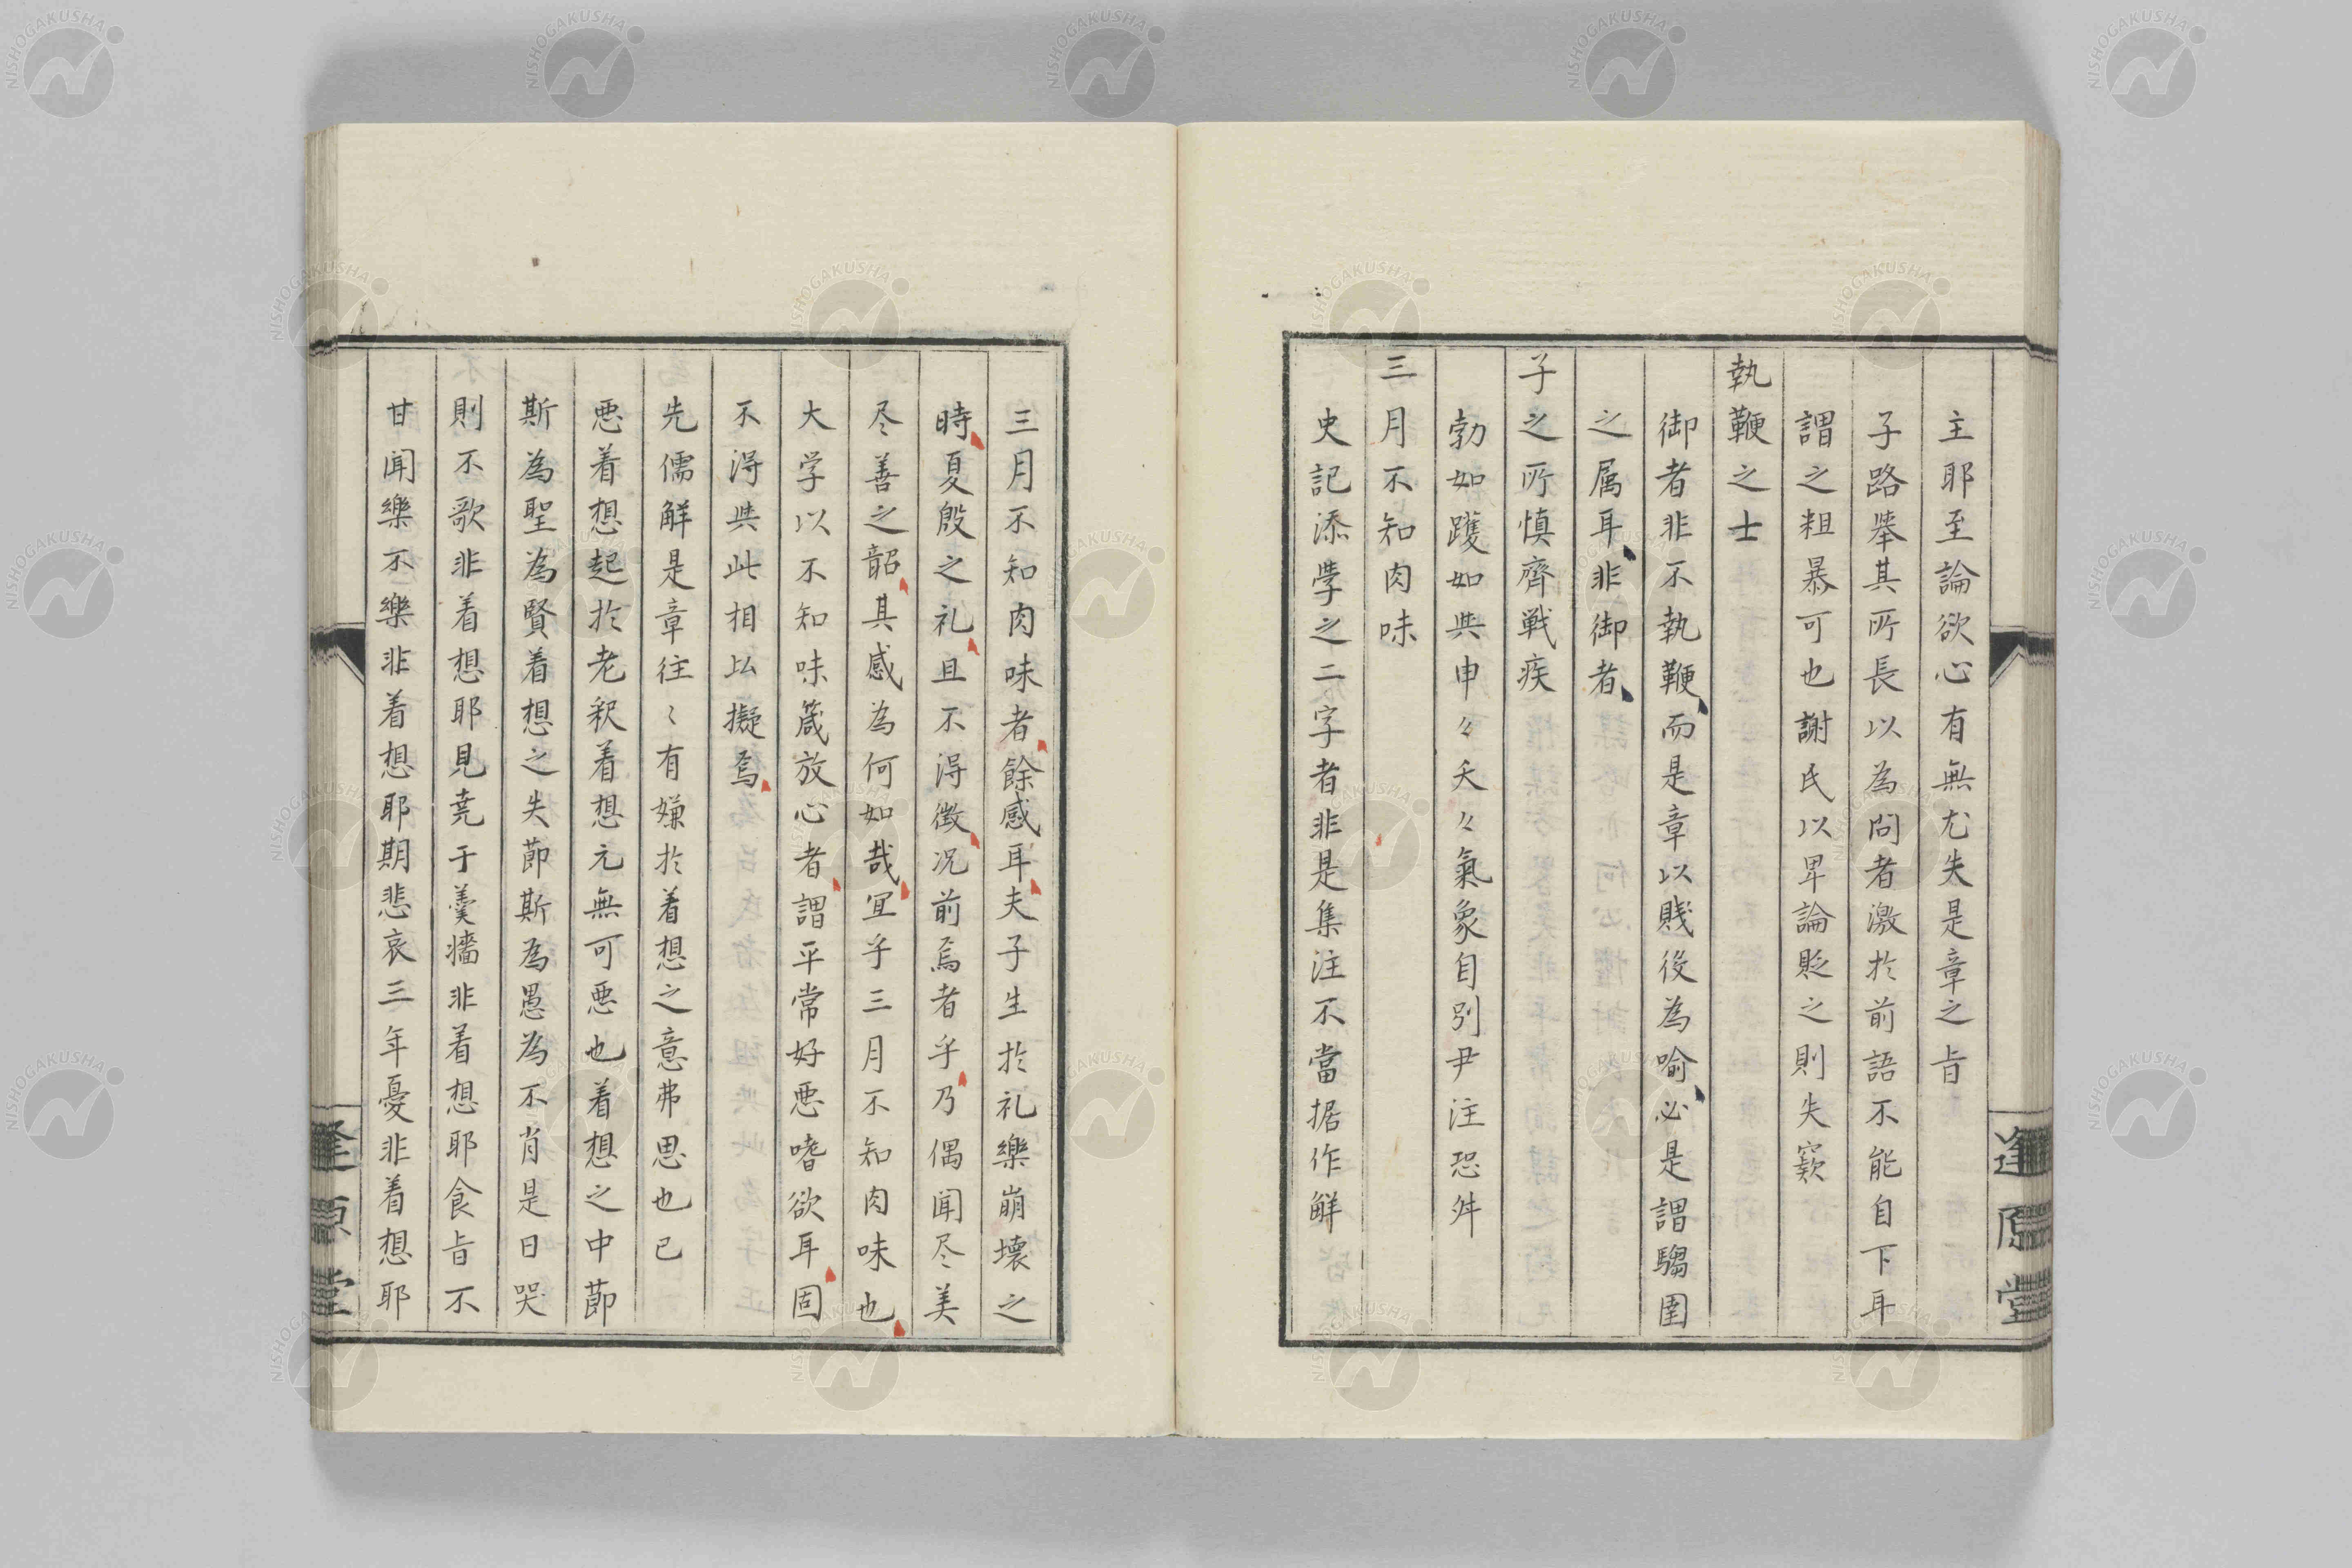 主耶至論欲心有無尤失是章之旨
子路挙其所長以為問者激於前語不能自下耳
謂之粗暴可也謝氏以卑論貶之則失窾
執鞭之士
御者非不執鞭而是章以賎役為喻必是謂騶圉
之属耳非御者
子之所慎齊戦疾
勃如躩如與申々夭々氣象自別尹注恐舛
三月不知肉味
史記添學之二字者非是集注不當据作解
三月不知肉味者餘感耳夫子生於礼樂崩壊之
時夏殷之礼且不得徴况前焉者乎乃偶聞尽美
尽善之韶其感為何如哉宜乎三月不知肉味也
大学以不知味箴放心者謂平常好悪嗜欲耳固
不得與此相比擬焉
先儒解是章往〻有嫌於着想之意弗思也已
悪着想起於老釈着想元無可悪也着想之中節
斯為聖為賢着想之失節斯為愚為不肖是日哭
則不歌非着想耶見尭于羹牆非着想耶食旨不
甘聞樂不樂非着想耶期悲哀三年憂非着想耶
逢原堂
逢原堂
NISHOGAKUSHA